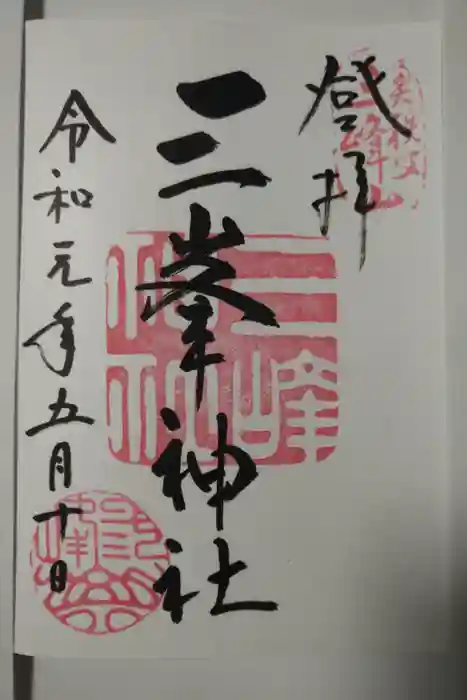 登拝
奥秩父
三峰山
三峯神社
三峰
神社
令和元年五月十日